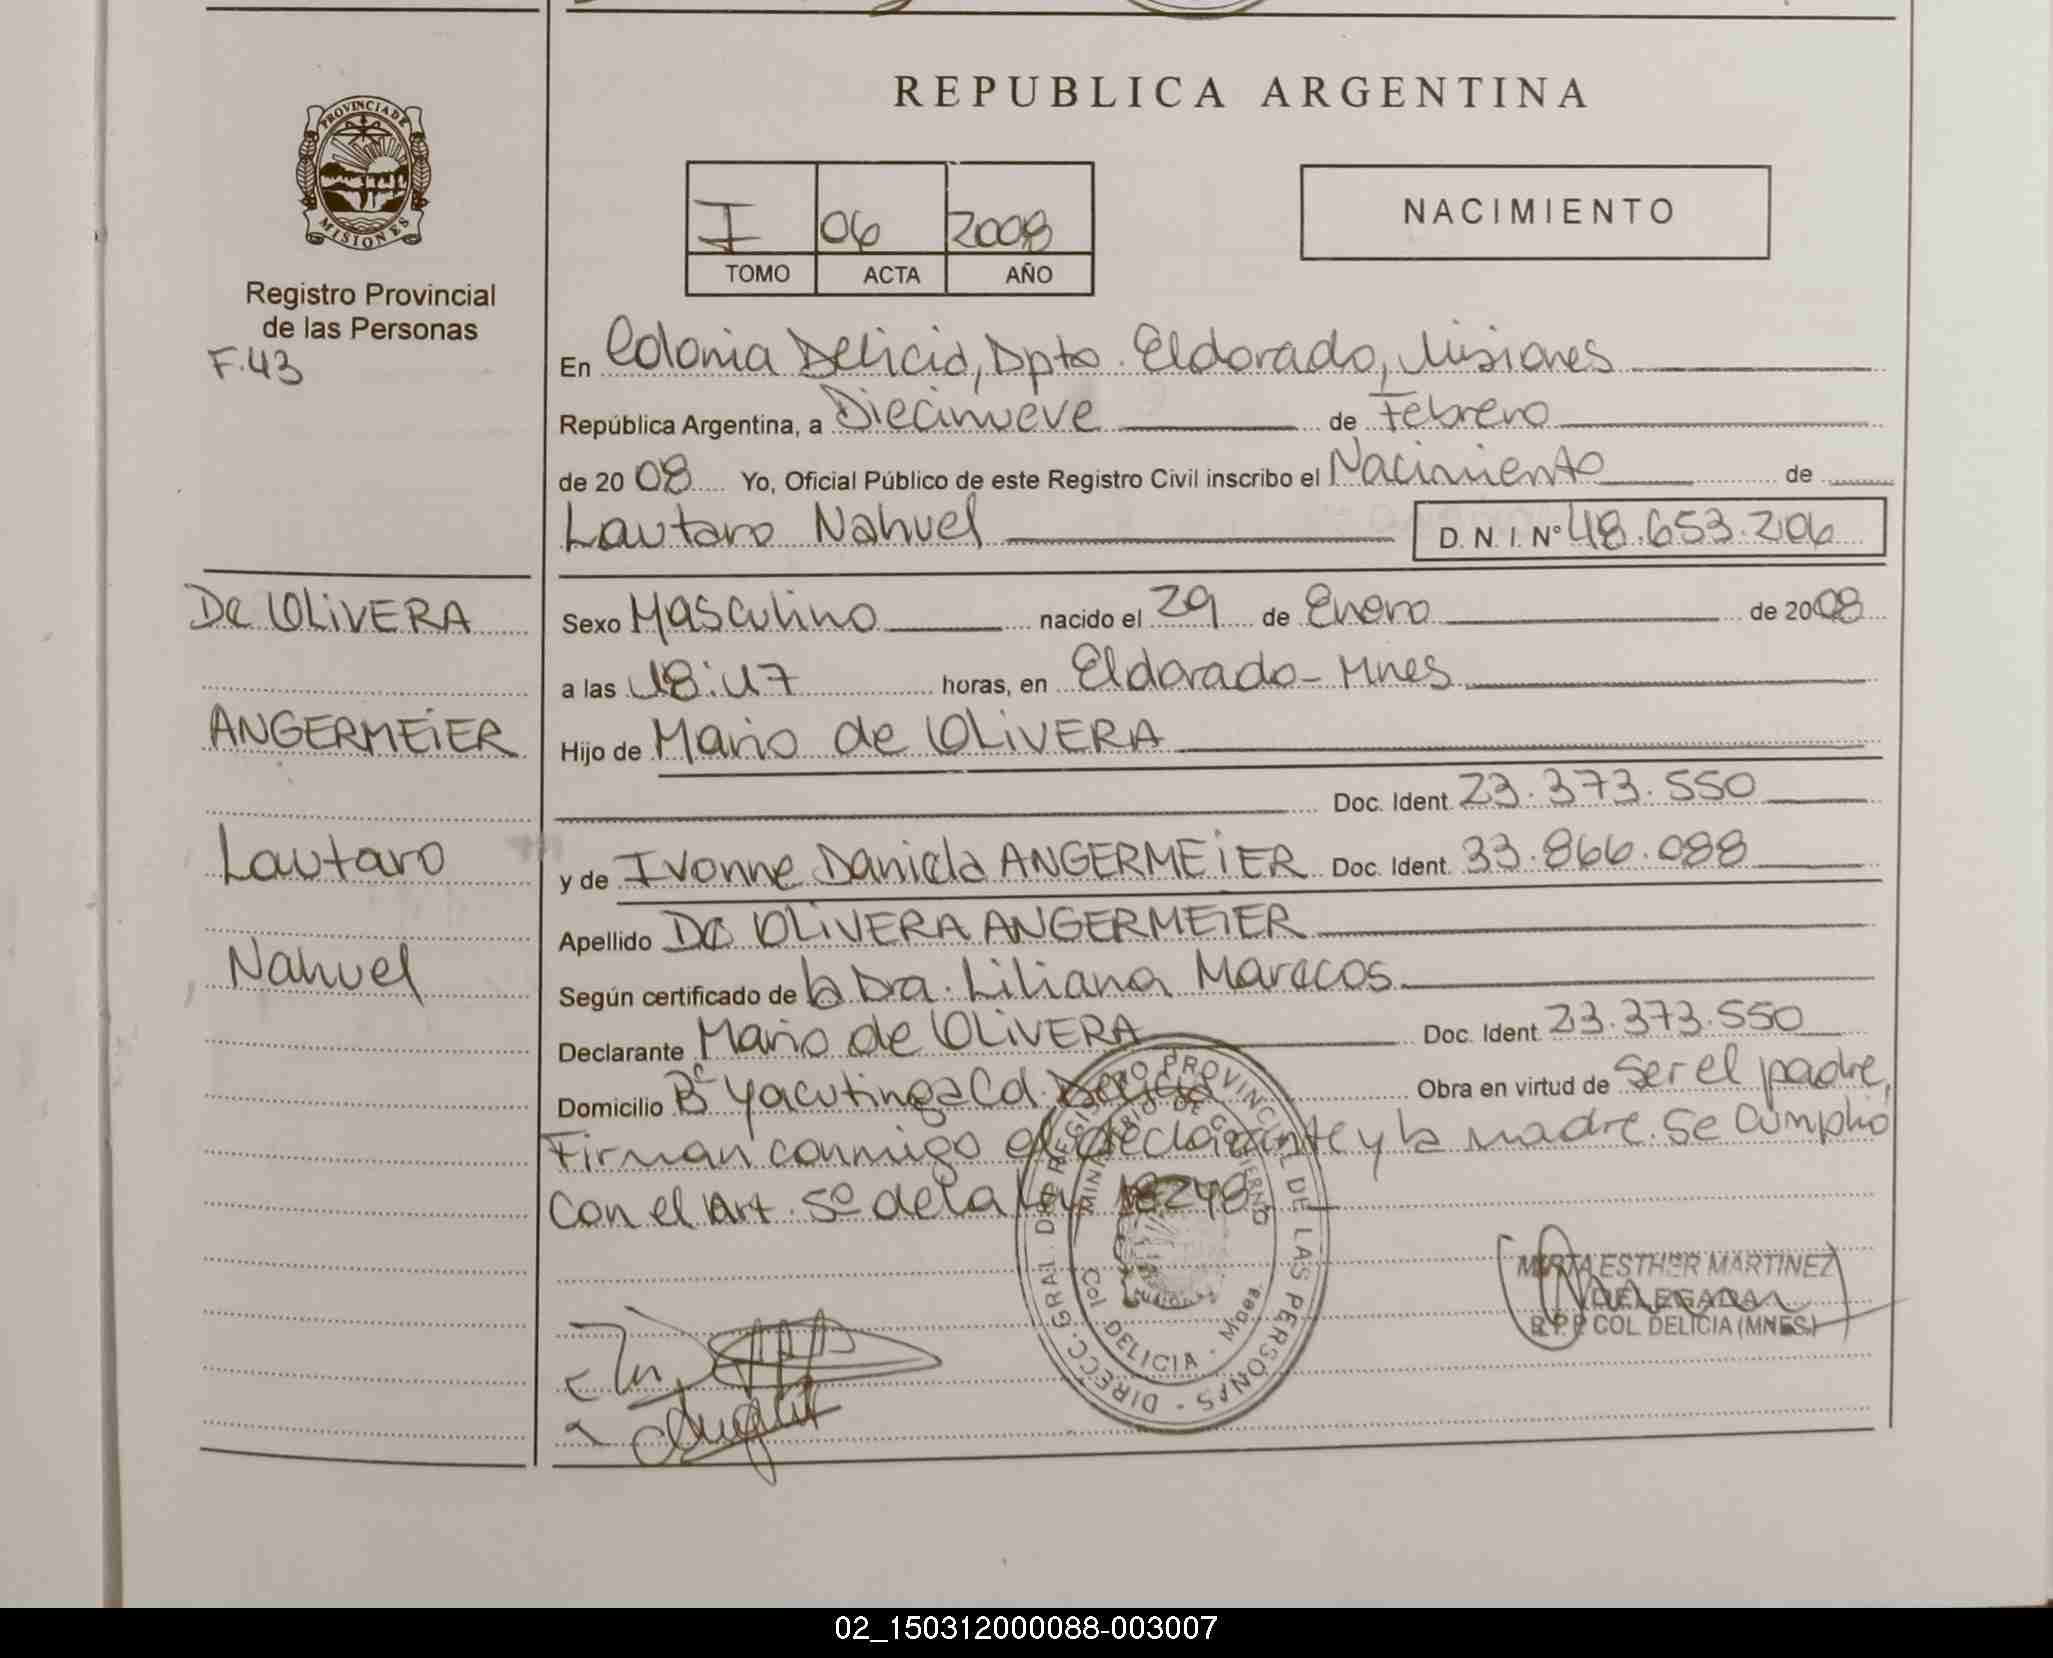 REPUBLICA ARGENTINA
PROVINCIA DE
MISIONES
Registro Provincial
de las Personas
F.43
I 06 2008
TOMO ACTA AÑO
NACIMIENTO
En Colonia Delicia, Dpto. Eldorado, Misiones
República Argentina, a Diecinueve de Febrero
de 2008 Yo, Oficial Público de este Registro Civil inscribo el Nacimiento de
Lautaro Nahuel D.N.I. Nº 48.653.206
De OLiVERA
ANGERMEiER
Lautaro
Nahuel
Sexo Masculino nacido el 29 de Enero de 2008
a las 18:17 horas, en Eldorado - Mnes
Hijo de Mario de OLiVERA
Doc. Ident. 23.373.550
y de Ivonne Daniela ANGERMEiER Doc. Ident. 33.866.088
Apellido De OLiVERA ANGERMEiER
Según certificado de la Dra. Liliana Marecos
Declarante Mario de OLiVERA Doc. Ident. 23.373.550
Domicilio Bº Yacutinga Col. Delicia Obra en virtud de Ser el padre,
Firman conmigo el declarante y la madre. Se Cumplió
Con el Art. 5º de la Ley 18248
DIRECC. GRAL. DEL REGISTRO PROVINCIAL DE LAS PERSONAS
MINISTERIO DE GOBIERNO
Col. DELICIA - Mnes.
MISIONES
MIRTA ESTHER MARTINEZ
DELEGADA
R.P.P. COL. DELICIA (MNES.)
02_150312000088-003007